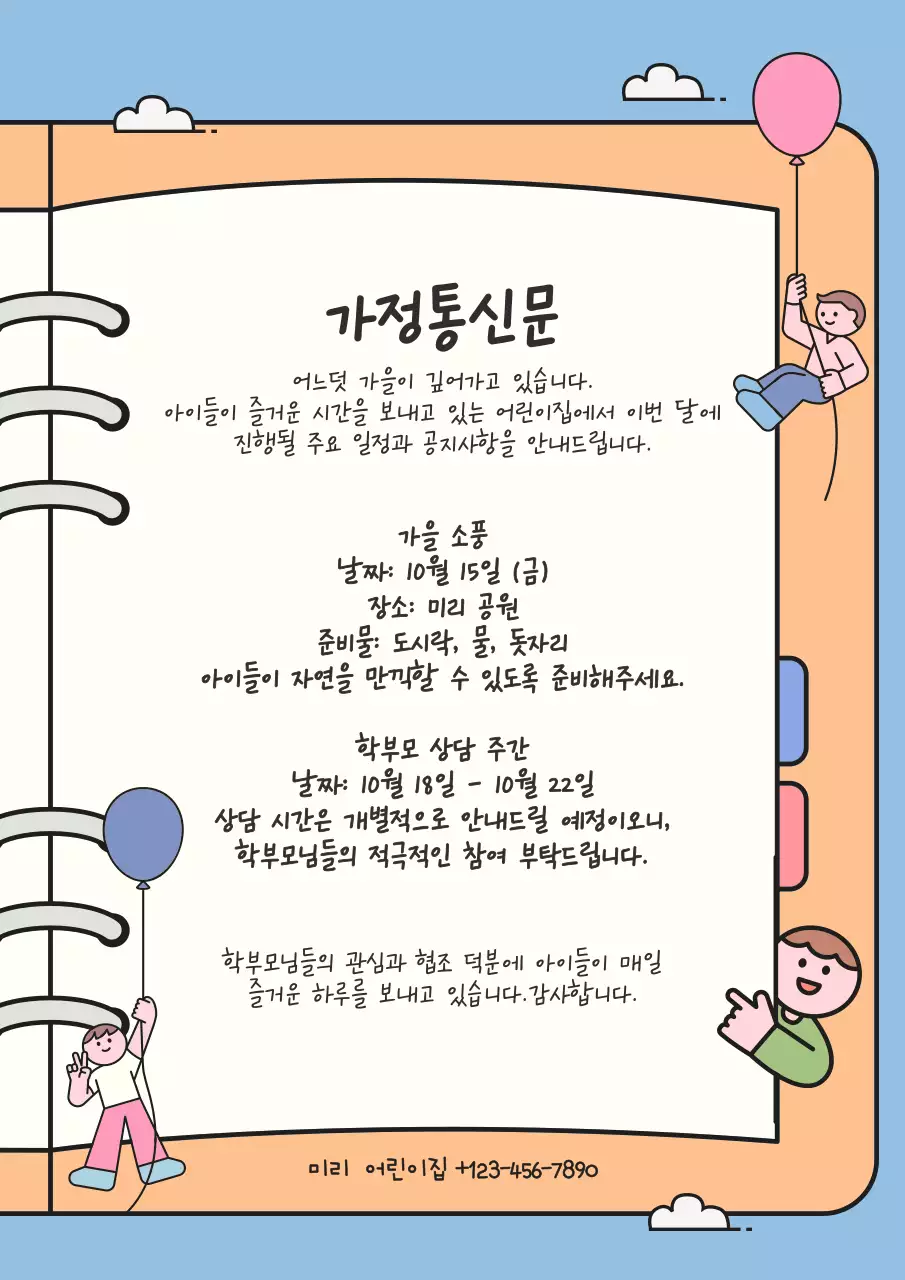 가정통신문
어느덧 가을이 깊어가고 있습니다.
아이들이 즐거운 시간을 보내고 있는 어린이집에서 이번 달에
진행될 주요 일정과 공지사항을 안내드립니다.
가을 소풍
날짜: 10월 15일 (금)
장소: 미리 공원
준비물: 도시락, 물, 돗자리
아이들이 자연을 만끽할 수 있도록 준비해주세요.
학부모 상담 주간
날짜: 10월 18일 - 10월 22일
상담 시간은 개별적으로 안내드릴 예정이오니,
학부모님들의 적극적인 참여 부탁드립니다.
학부모님들의 관심과 협조 덕분에 아이들이 매일
즐거운 하루를 보내고 있습니다.감사합니다.
미리 어린이집 +123-456-7890